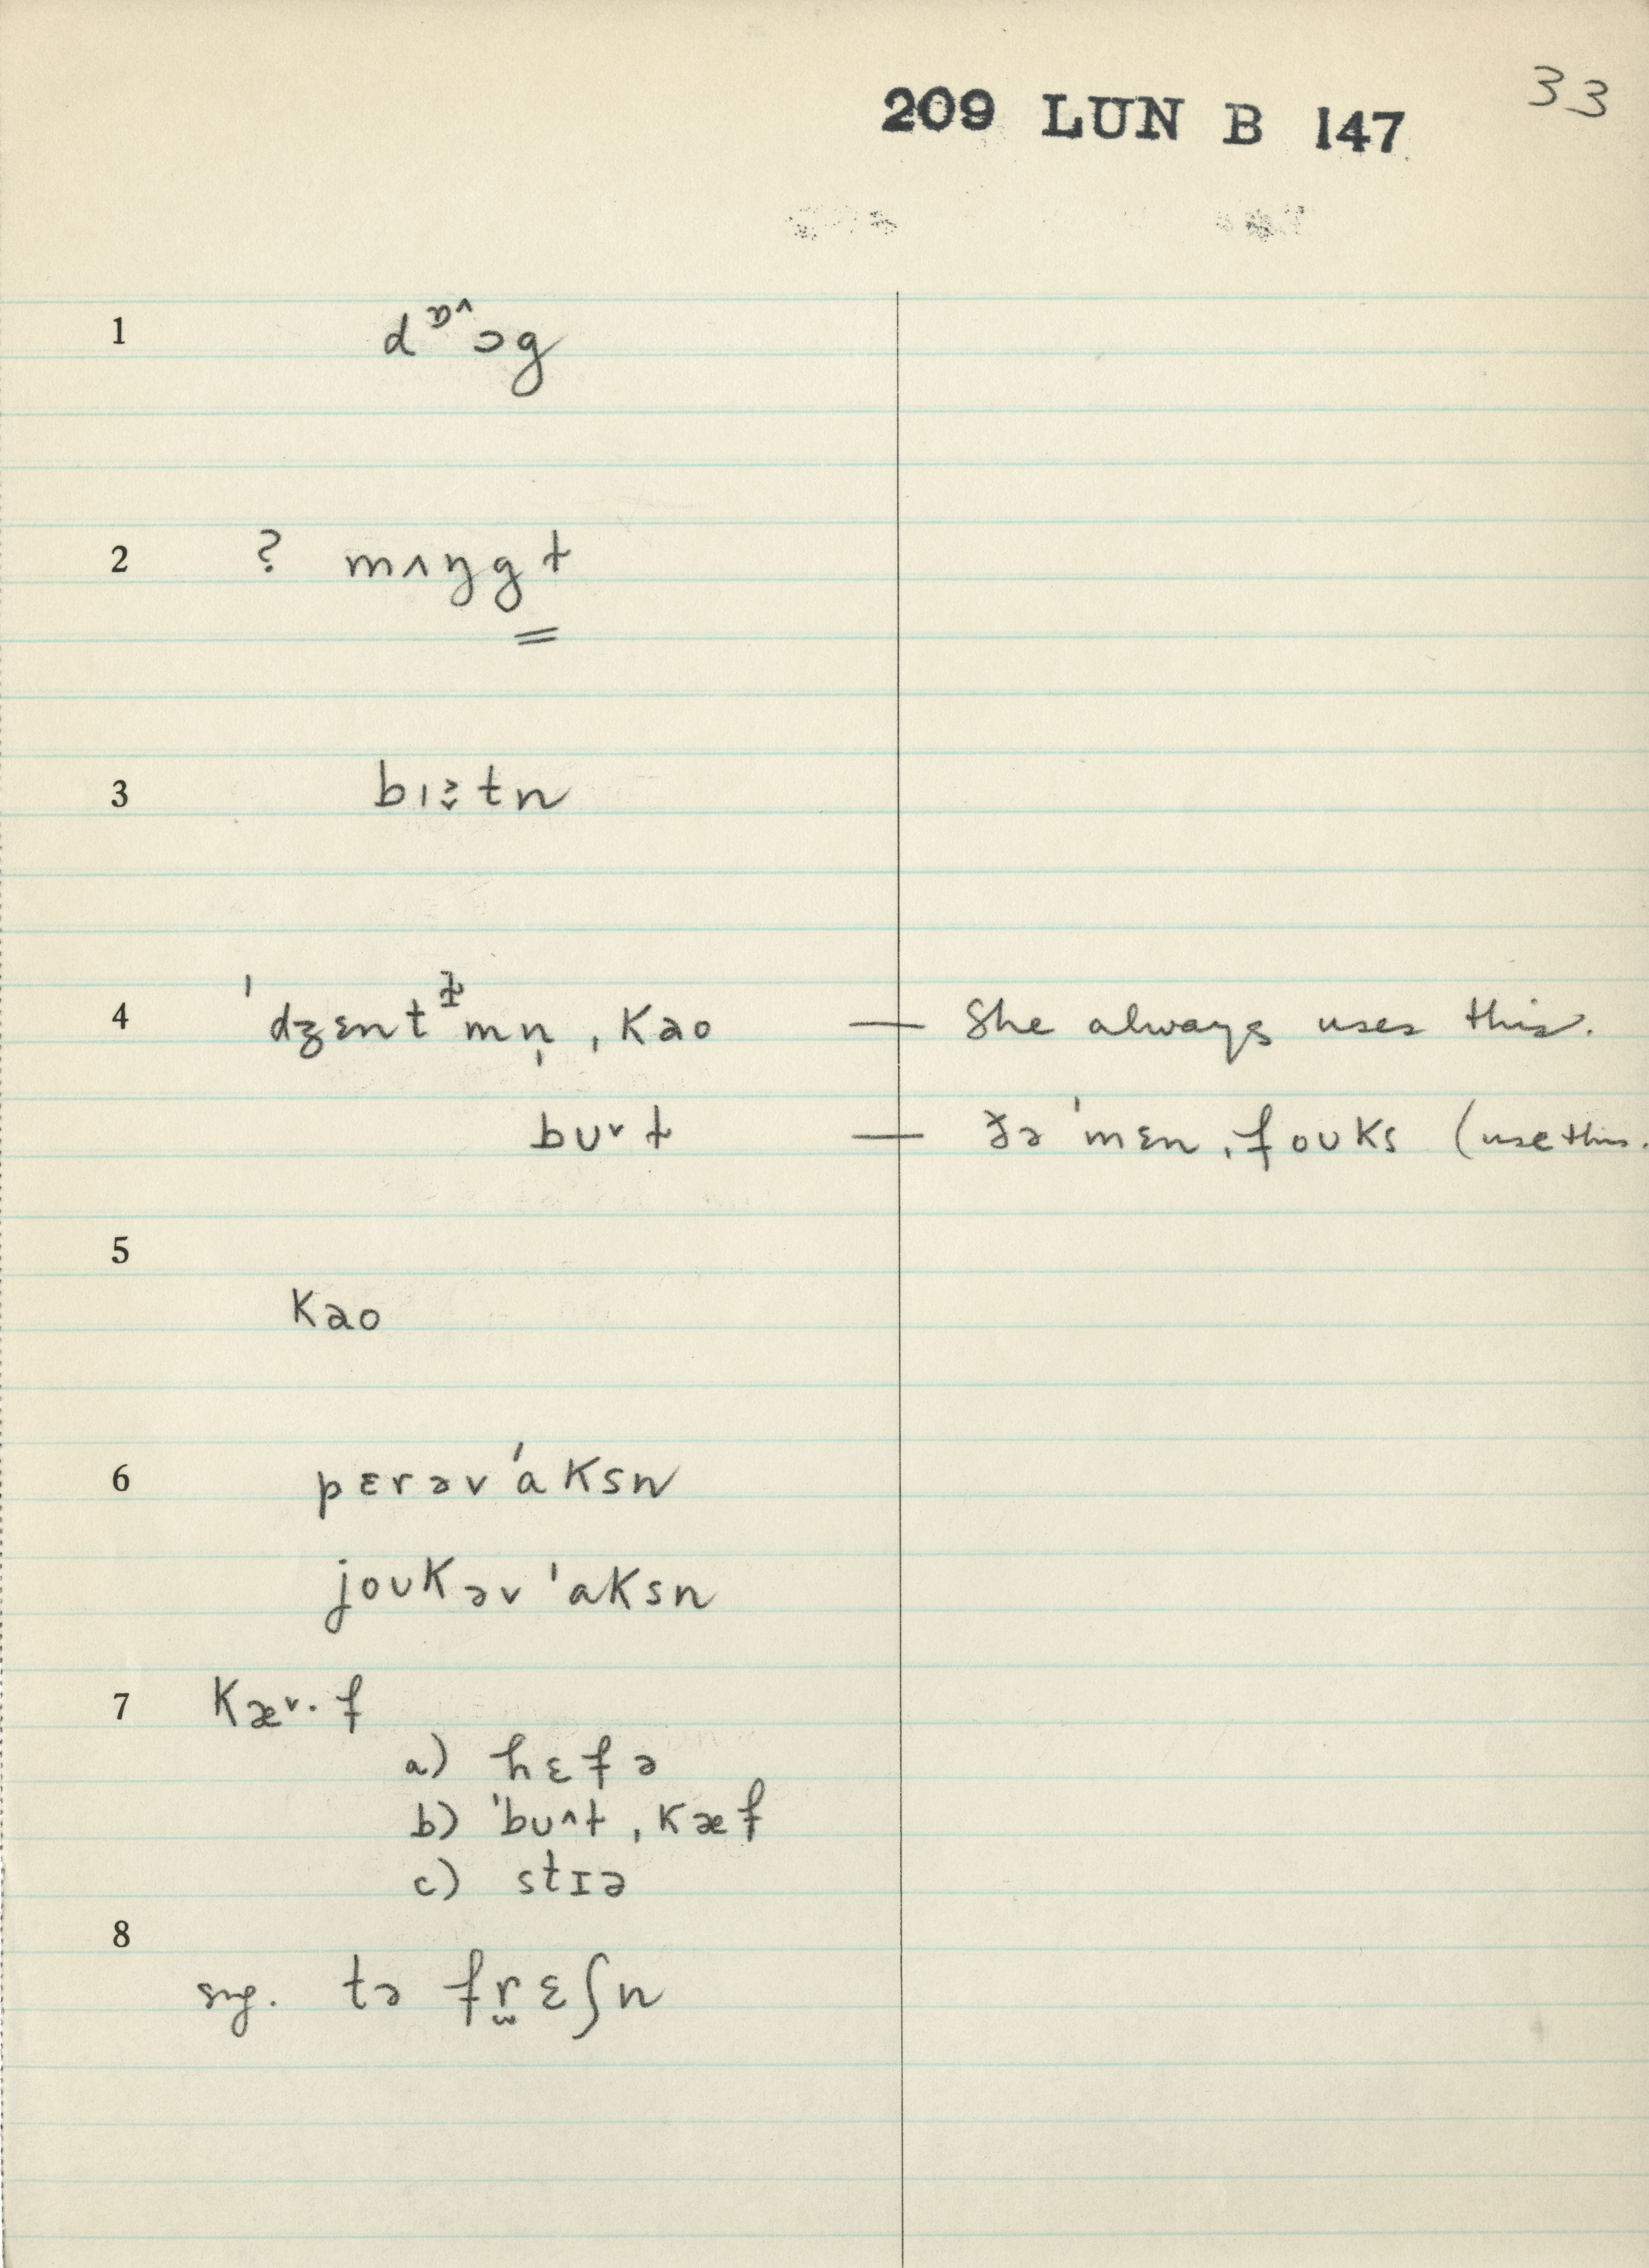 33
209 LUN B 147
1 dᶛ^ɔg
2 ? mʌŋgɫ
3 bɪɜ̬tn
4 ˈdʒɛntᵻmn̩ ˌkao — She always uses this.
bʊ˅ɫ — ðəˈmɛnˌfoʊks (use this.
5
kao
6 pɛrəvˈaksn
joʊkəvˈaksn
7 kæ˅·f
a) hɛfə
b) ˈbʊ^ɫˌkæf
c) stɪə
8
sng. tə fr̫ɛʃn